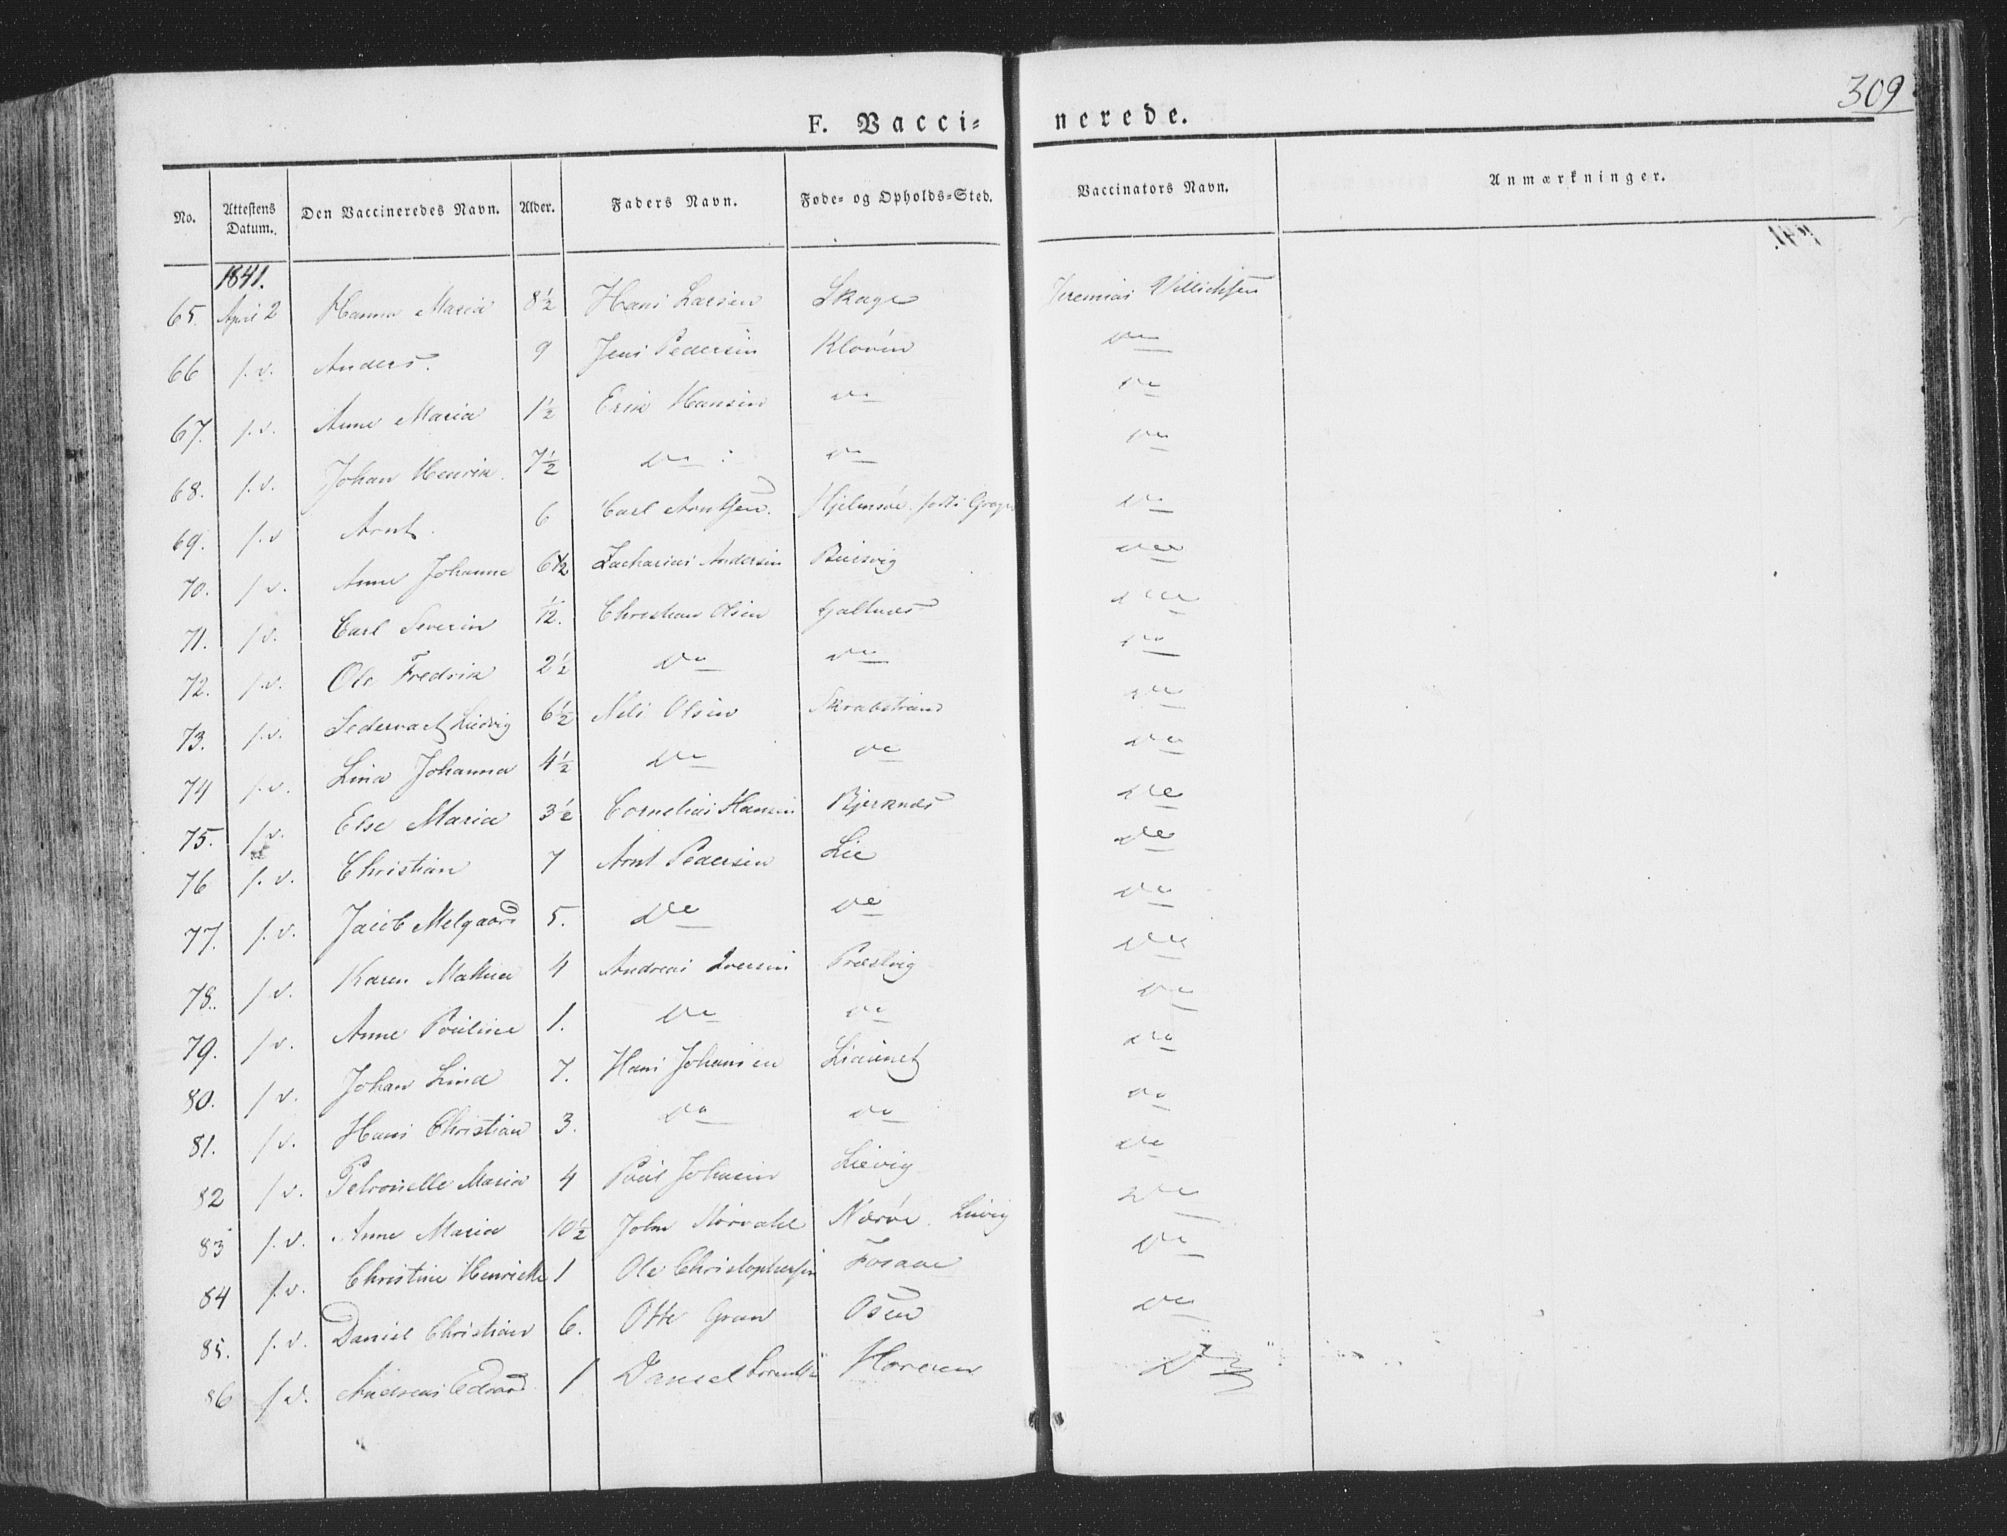 309
F. Vaccinerede.
No. Attestens Datum. Den Vaccineredes Navn. Alder. Faders Navn. Føde- og Opholds-Sted. Vaccinators Navn. Anmærkninger.
1841.
65. April 2 Hanna Maria 8½ Hans Larsen Skage Jeremias
66 f. v. Anders. 9 Jens Pedersen Kloven do
67. f. v. Anne Maria 1½ Erik Hansen do do
68. f. v. Johan Henrik 7½ do do do
69. f. v. Arnt. 6 Carl Arntsen. do
70. f. v. Anne Johanne 6½ Zacharias Andersen do
71. f. v. Carl Severin Christian Olsen Galtnes do
72. f. v. Ole Fredrik 2½ do do do
73. f. v. Ludvig 6½ Nils Olsen Skrabstrand do
74 f. v. Lina Johanna 4½ do do do
75. f. v. Else Maria 3½ Cornelius Hansen do
76 f. v. Christian 7 Arnt Pedersen Lie do
77. f. v. Jacob Melgaard 5. do do do
78. f. v. Karen 4 Andreas Iversen Præstvig do
79. f. v. Anne Pouline 1. do do do
80. f. v. Johan Lind 7. Hans Johansen do
81. f. v. Hans Christian 3. do do do
82 f. v. Petronelle Maria 4 Poul Johansen Lievig do
83 f. v. Anne Maria 10½ John Nærøe. do
84 f. v. Christine Henriette 1 Ole Christophersen Fosaae do
85. f. v. Daniel Christian 6. Otte Gran Osen do
86 f. v. Andreas Edvard 1 Daniel do